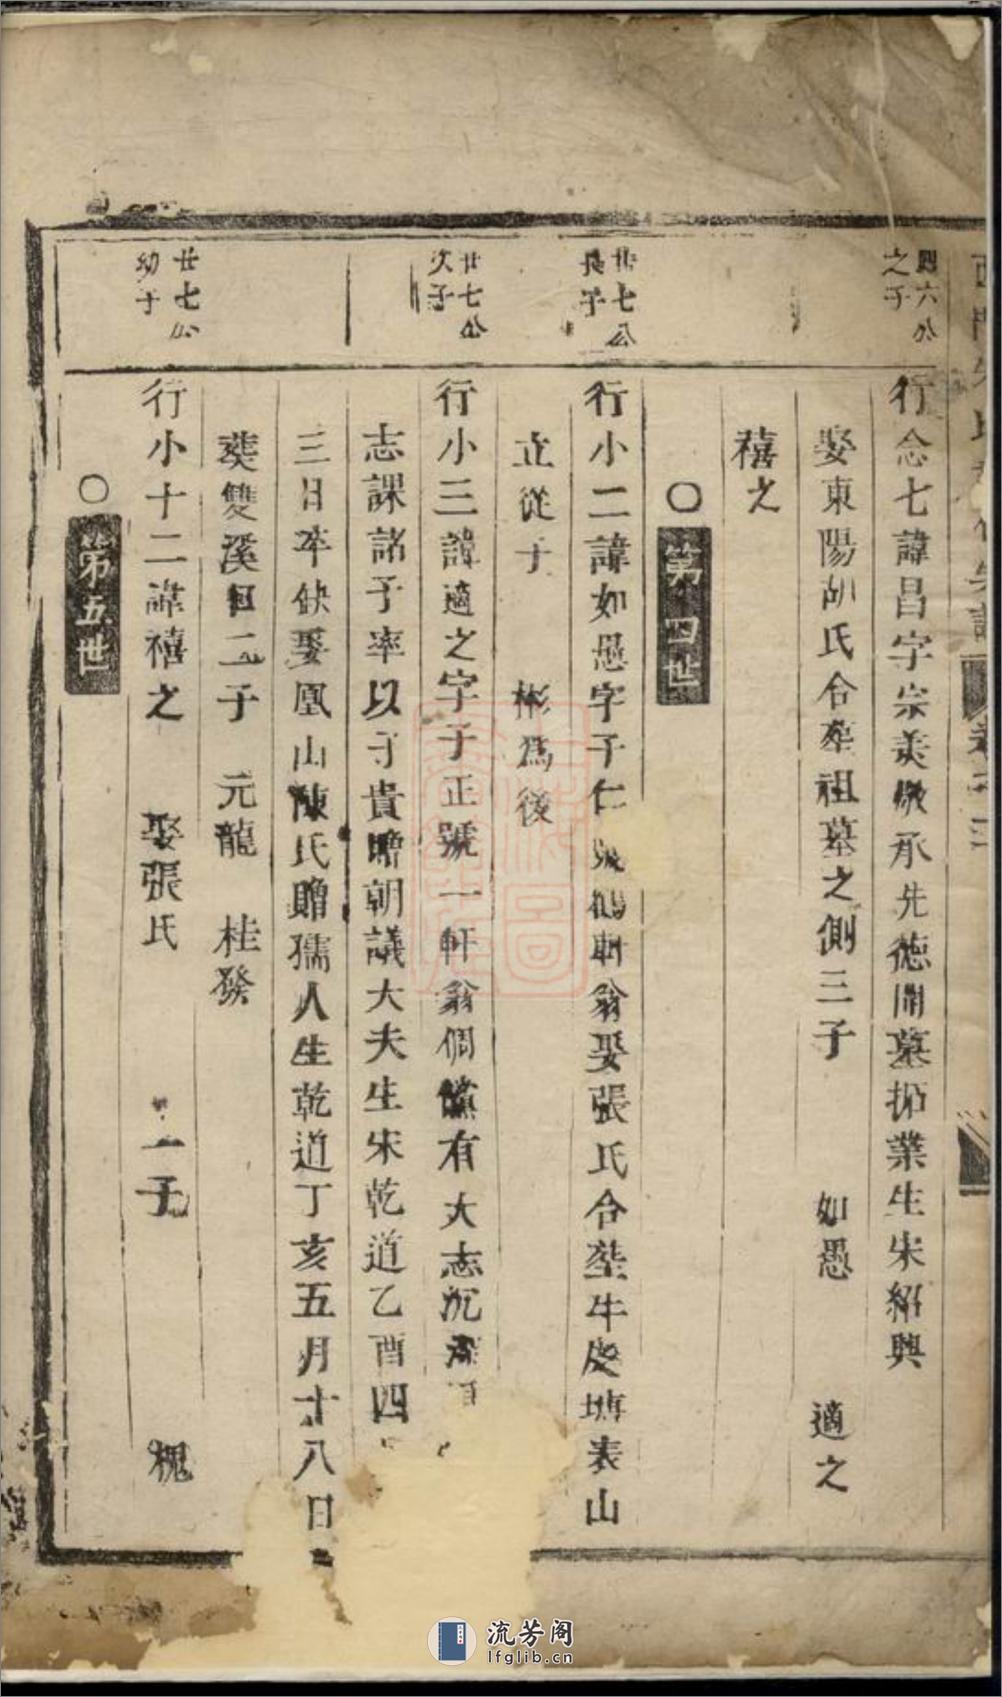 六公
之子
行念七諱昌字宗美繳承先德開墓拓業生宋紹興
娶東陽胡氏合葬祖墓之側三子 如愚 適之
禧之
○第四世
廿七公
長子
行小二諱如愚字子仁號 軒翁娶張氏合塟牛塘表山
立從子 彬爲後
廿七公
次子
行小三諱適之字子正號一軒翁倜儻有大志沉
志課諸子率以子貴贈朝議大夫生宋乾道乙酉四
三日卒缺娶鳳山陳氏贈孺人生乾道丁亥五月十八日
葬雙溪口二子 元龍 桂發
廿七公
幼子
行小十二諱禧之 娶張氏 一子 槐
○第五世
流芳阁
lfglib.cn